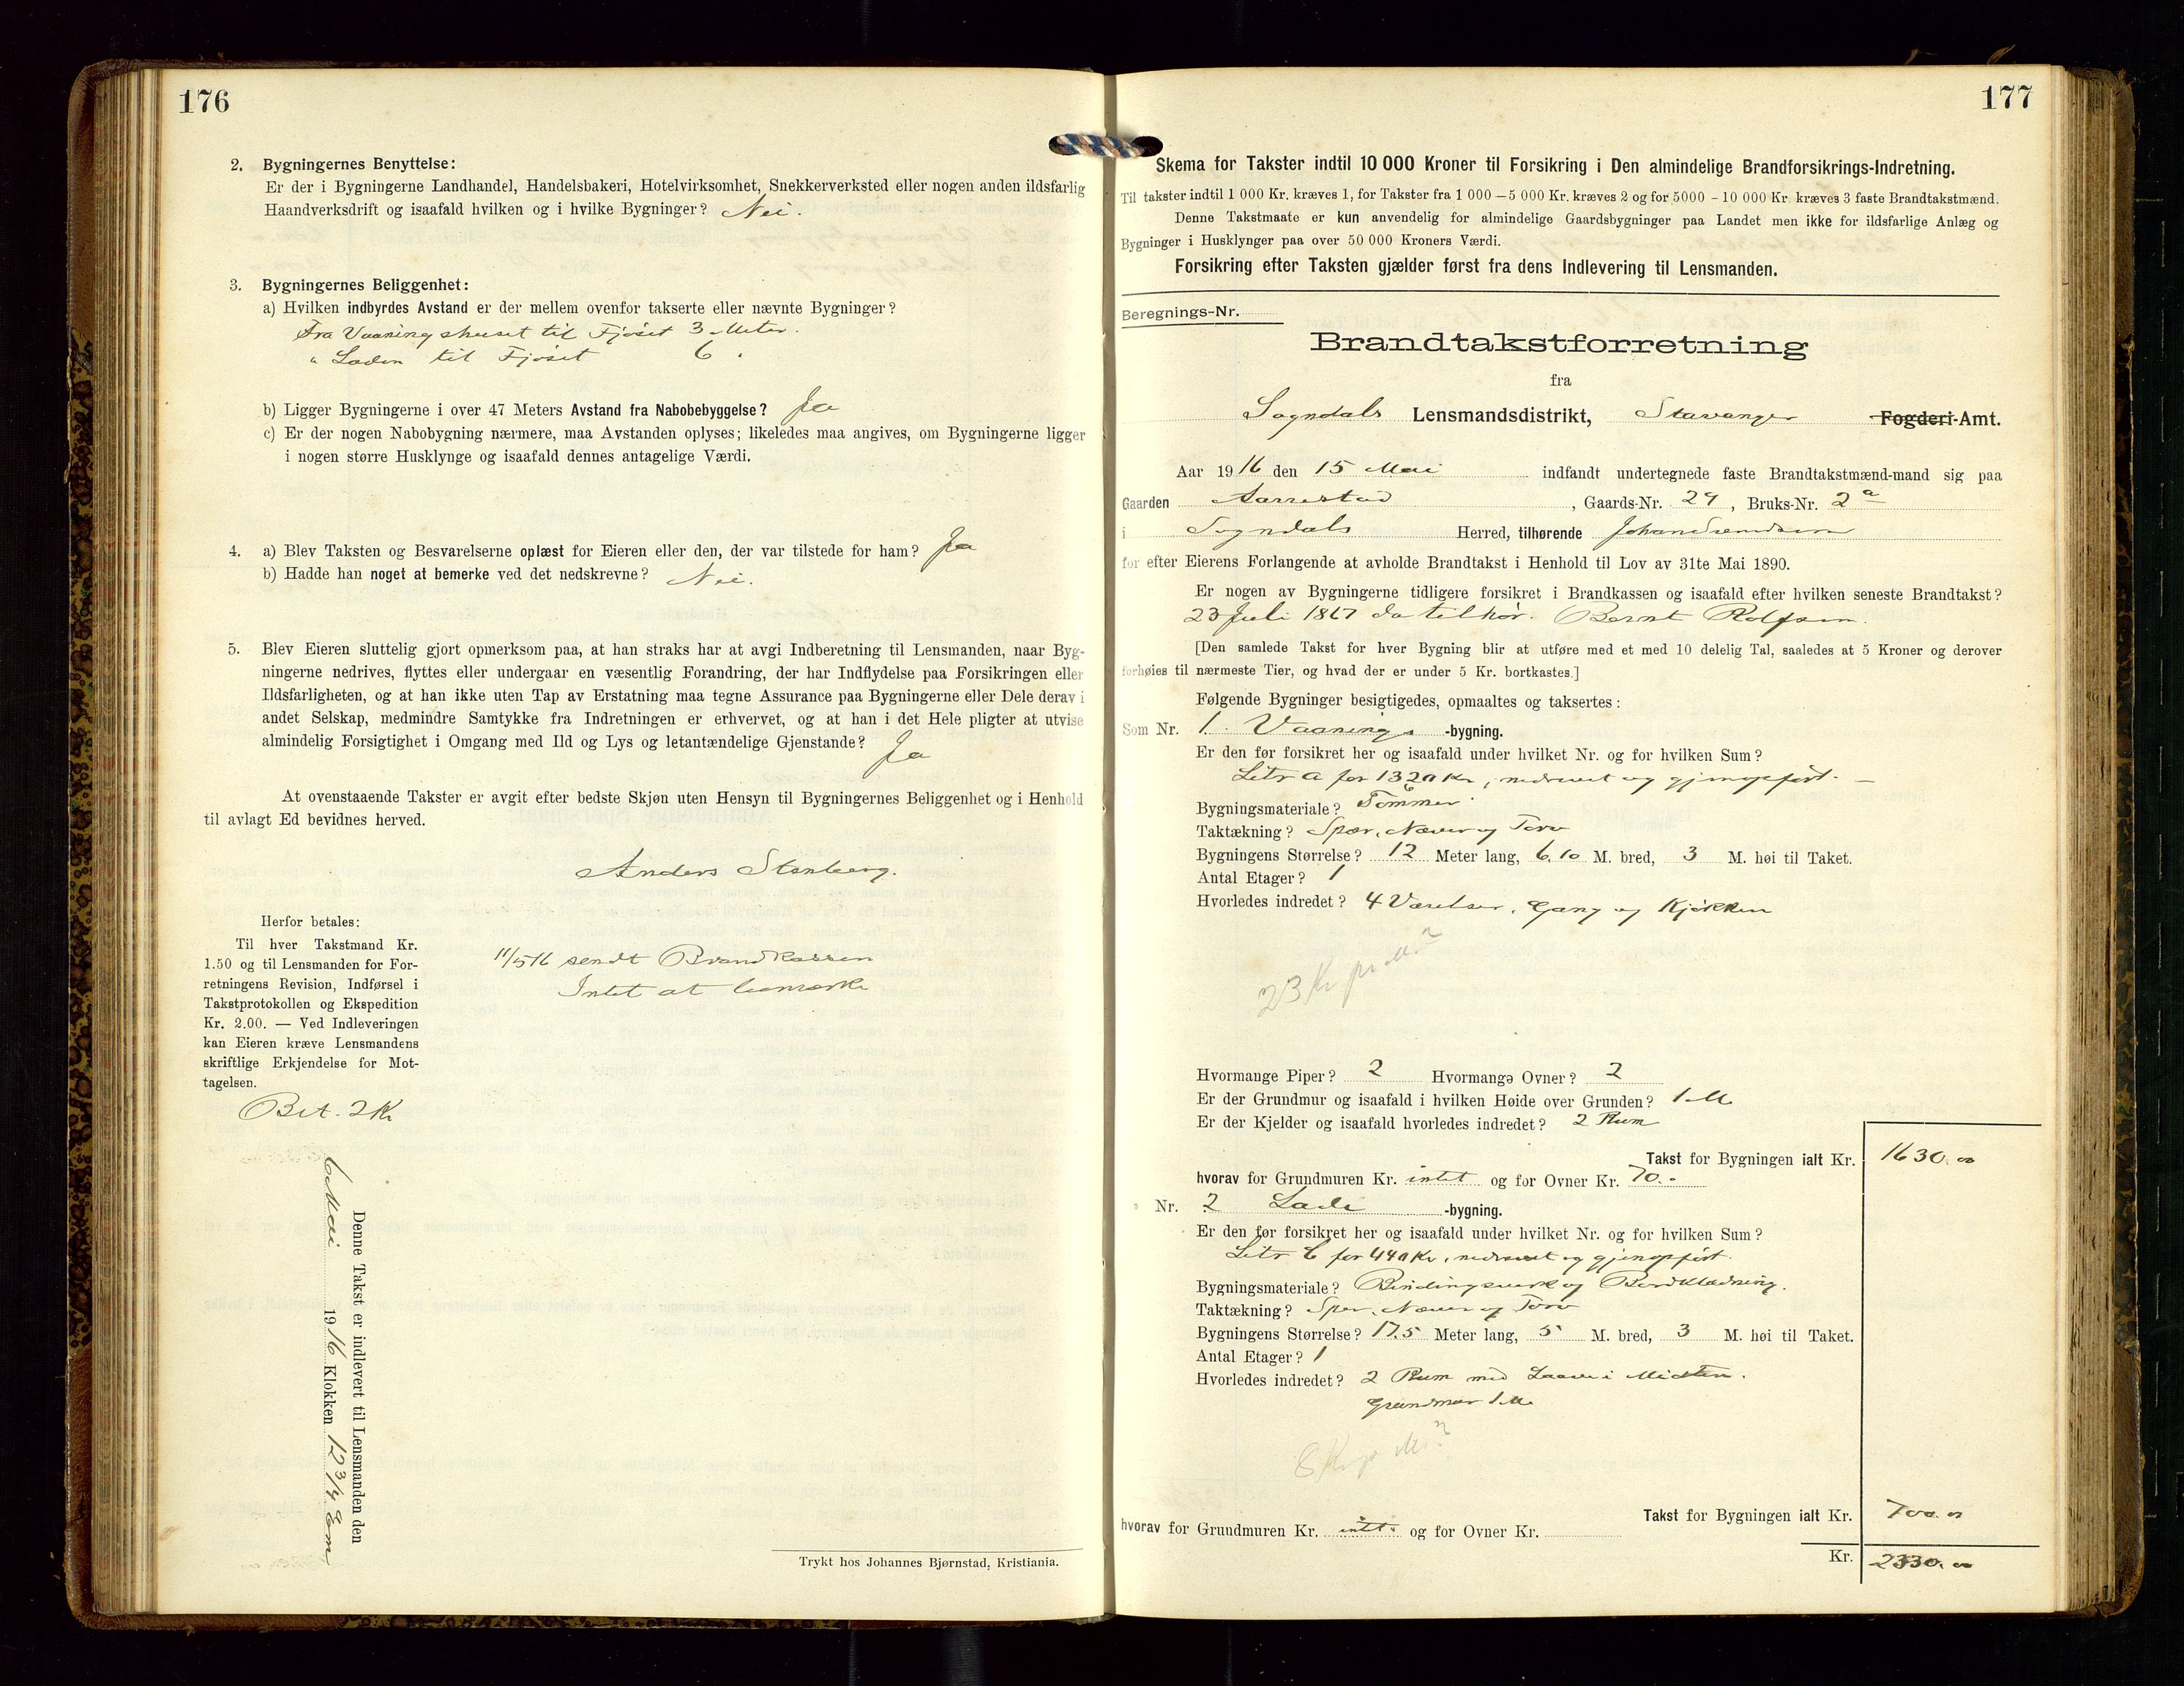 176
2. Bygningernes Benyttelse:
Er der i Bygningerne Landhandel, Handelsbakeri, Hotelvirksomhet, Snekkerverksted eller nogen anden ildsfarlig
Haandverksdrift og isaafald hvilken og i hvilke Bygninger? Nei.
3. Bygningernes Beliggenhet:
a) Hvilken indbyrdes Avstand er der mellem ovenfor takserte eller nævnte Bygninger?
Fra Vaaningshuset til Fjøset 3 Meter.
" Laden til Fjøset 6 "
b) Ligger Bygningerne i over 47 Meters Avstand fra Nabobebyggelse? Ja
c) Er der nogen Nabobygning nærmere, maa Avstanden oplyses; likeledes maa angives, om Bygningerne ligger
i nogen større Husklynge og isaafald dennes antagelige Værdi.
4. a) Blev Taksten og Besvarelserne oplæst for Eieren eller den, der var tilstede for ham? Ja
b) Hadde han noget at bemerke ved det nedskrevne? Nei.
5. Blev Eieren sluttelig gjort opmerksom paa, at han straks har at avgi Indberetning til Lensmanden, naar Byg-
ningerne nedrives, flyttes eller undergaar en væsentlig Forandring, der har Indflydelse paa Forsikringen eller
Ildsfarligheten, og at han ikke uten Tap av Erstatning maa tegne Assurance paa Bygningerne eller Dele derav i
andet Selskap, medmindre Samtykke fra Indretningen er erhvervet, og at han i det Hele pligter at utvise
almindelig Forsigtighet i Omgang med Ild og Lys og letantændelige Gjenstande? Ja
At ovenstaaende Takster er avgit efter bedste Skjøn uten Hensyn til Bygningernes Beliggenhet og i Henhold
til avlagt Ed bevidnes herved.
Anders Stenberg.
Herfor betales:
Til hver Takstmand Kr.
1.50 og til Lensmanden for For-
retningens Revision, Indførsel i
Takstprotokollen og Ekspedition
Kr. 2.00. — Ved Indleveringen
kan Eieren kræve Lensmandens
skriftlige Erkjendelse for Mot-
tagelsen.
Bet. 2 Kr
11/5 16 sendt Brandkassen
Intet at bemærke
Denne Takst er indlevert til Lensmanden den
6 Mai 1916 Klokken 12 3/4 Em
Trykt hos Johannes Bjørnstad, Kristiania.
177
Skema for Takster indtil 10 000 Kroner til Forsikring i Den almindelige Brandforsikrings-Indretning.
Til takster indtil 1 000 Kr. kræves 1, for Takster fra 1 000 – 5 000 Kr. kræves 2 og for 5000 - 10 000 Kr. kræves 3 faste Brandtakstmænd.
Denne Takstmaate er kun anvendelig for almindelige Gaardsbygninger paa Landet men ikke for ildsfarlige Anlæg og
Bygninger i Husklynger paa over 50 000 Kroners Værdi.
Forsikring efter Taksten gjælder først fra dens Indlevering til Lensmanden.
Beregnings-Nr.
Brandtakstforretning
fra
Sogndals Lensmandsdistrikt, Stavanger Fogderi-Amt.
Aar 1916 den 15 Mai indfandt undertegnede faste Brandtakstmænd-mand sig paa
Gaarden Aarrestad, Gaards-Nr. 29, Bruks-Nr. 2 a
i Sogndals Herred, tilhørende Johan Svendsen
for efter Eierens Forlangende at avholde Brandtakst i Henhold til Lov av 31te Mai 1890.
Er nogen av Bygningerne tidligere forsikret i Brandkassen og isaafald efter hvilken seneste Brandtakst?
23 Juli 1867 da tilhør. Bernt Rolfsen.
[Den samlede Takst for hver Bygning blir at utføre med et med 10 delelig Tal, saaledes at 5 Kroner og derover
forhøies til nærmeste Tier, og hvad der er under 5 Kr. bortkastes.]
Følgende Bygninger besigtigedes, opmaaltes og taksertes:
Som Nr. 1. Vaanings -bygning.
Er den før forsikret her og isaafald under hvilket Nr. og for hvilken Sum?
Litr a for 1320 Kr, nedrevet og gjenopført. —
Bygningsmateriale? Tømmer
Taktækning? Spær, Næver og Torv
Bygningens Størrelse? 12 Meter lang, 6.10 M. bred, 3 M. høi til Taket.
Antal Etager? 1
Hvorledes indredet? 4 Værelser, Gang og Kjøkken
23 Kr pr M.2
Hvormange Piper? 2 Hvormange Ovner? 2
Er der Grundmur og isaafald i hvilken Høide over Grunden? 1 M.
Er der Kjelder og isaafald hvorledes indredet? 2 Rum
Takst for Bygningen ialt Kr. 1630.00
hvorav for Grundmuren Kr. intet og for Ovner Kr. 70.-
" Nr. 2 Lade -bygning.
Er den før forsikret her og isaafald under hvilket Nr. og for hvilken Sum?
Litr b for 440 Kr, nedrevet og gjenopført.
Bygningsmateriale? Bindingsverk og Bordklædning.
Taktækning? Spær, Næver og Torv
Bygningens Størrelse? 17.5 Meter lang, 5 M. bred, 3 M. høi til Taket.
Antal Etager? 1
Hvorledes indredet? 2 Rum med Laave i Midten.
Grundmur 1 M.
8 Kr p M.2
Takst for Bygningen ialt Kr. 700.00
hvorav for Grundmuren Kr. intt. og for Ovner Kr.
Kr. 2330.00